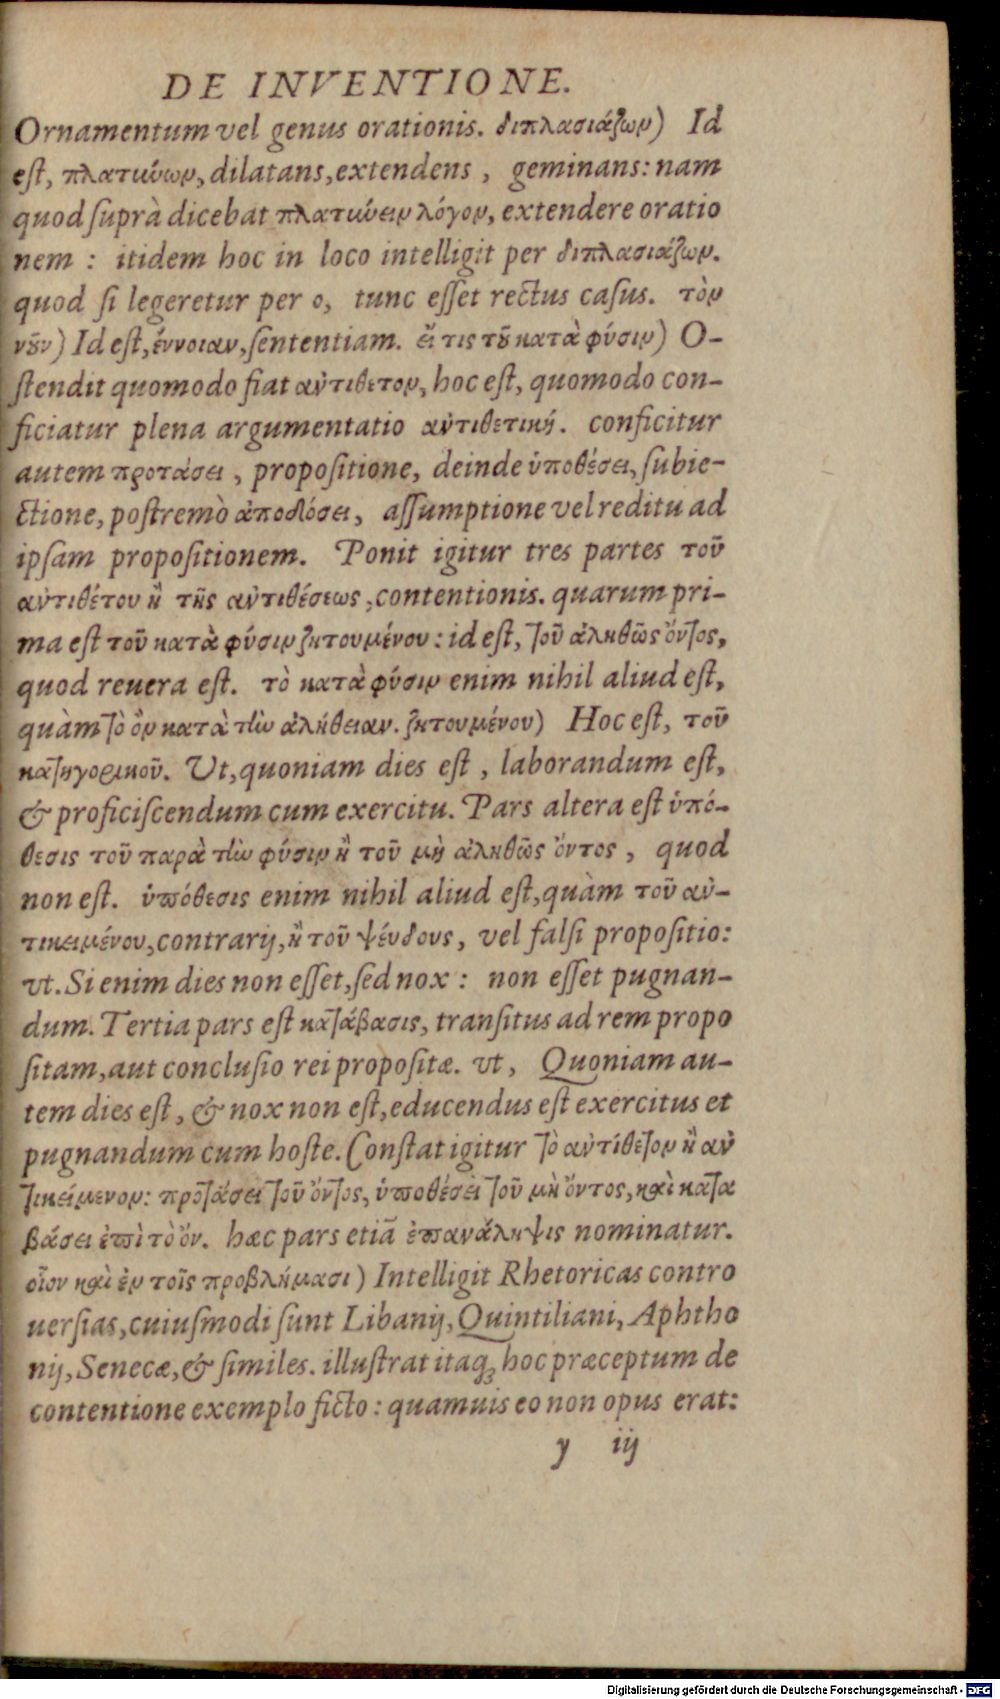 DE INVENTIONE.
Ornamentum vel genus orationis. διπλασιάζων) Id
est, πλατιώων, dilatans, extendens, geminans: nam
quod suprà dicebat πλατιώειν λόγον, extendere oratio
nem : itidem hoc in loco intelligit per διπλασιάζων.
quod si legeretur per o, tunc esset rectus casus. τὸν
νοῦν) Id est, ἔννοιαν, sententiam. εἴ τις τοῦ κατὰ φύσιν) O-
stendit quomodo fiat αὐτίθετον, hoc est, quomodo con-
ficiatur plena argumentatio αὐτιθετική. conficitur
autem προτάσει, propositione, deinde ὑποθέσει, subie-
ctione, postremò ἀποδόσει, assumptione vel reditu ad
ipsam propositionem. Ponit igitur tres partes τοῦ
αὐτιθέτου ἢ τῆς αὐτιθέσεως, contentionis. quarum pri-
ma est τοῦ κατὰ φύσιν ζητουμένου: id est, τοῦ ἀληθῶς ὄντος,
quod reuera est. τὸ κατὰ φύσιν enim nihil aliud est,
quàm τὸ ὂν κατὰ τὴν ἀλήθειαν. ζητουμένου) Hoc est, τοῦ
κατηγορικοῦ. Ut, quoniam dies est, laborandum est,
& proficiscendum cum exercitu. Pars altera est ὑπό-
θεσις τοῦ παρὰ τὴν φύσιν ἢ τοῦ μὴ ἀληθῶς ὄντος, quod
non est. ὑπόθεσις enim nihil aliud est, quàm τοῦ αὐ-
τικειμένου, contrarij, ἢ τοῦ ψέυδους, vel falsi propositio:
vt. Si enim dies non esset, sed nox: non esset pugnan-
dum. Tertia pars est κατάβασις, transitus ad rem propo
sitam, aut conclusio rei propositæ. vt, Quoniam au-
tem dies est, & nox non est, educendus est exercitus et
pugnandum cum hoste. Constat igitur τὸ αὐτίθετον ἢ αὐ
τικείμενον: προτάσει τοῦ ὄντος, ὑποθέσει τοῦ μὴ ὄντος, καὶ κατα
βάσει ἐπὶ τὸ ὄν. hæc pars etiã ἐπανάληψις nominatur.
οἷον καὶ ἐν τοῖς προβλήμασι) Intelligit Rhetoricas contro
uersias, cuiusmodi sunt Libanij, Quintiliani, Aphtho
nij, Senecæ, & similes. illustrat itaq; hoc præceptum de
contentione exemplo ficto: quamuis eo non opus erat:
y iij
Digitalisierung gefördert durch die Deutsche Forschungsgemeinschaft - DFG